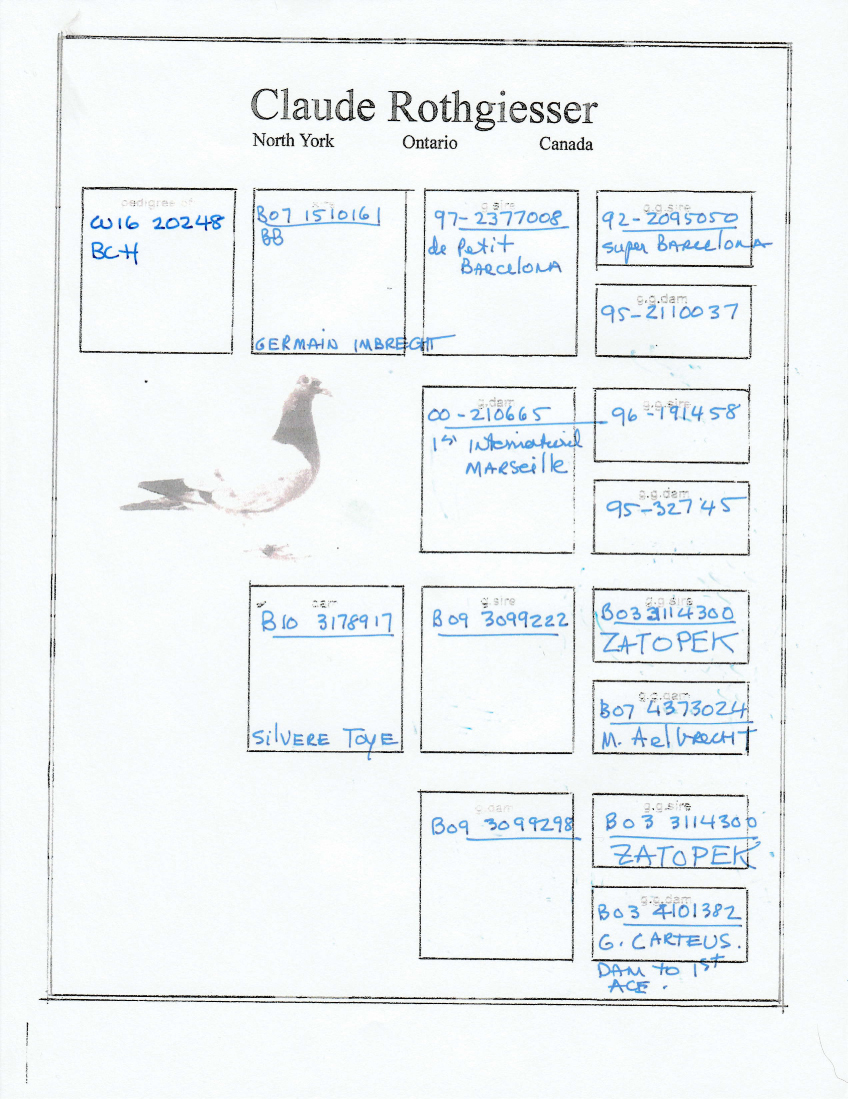 Claude Rothgiesser
North York Ontario Canada
pedigree of
CU16 20248
BCH
B07 1510161
BB
GERMAIN IMBRECHT
g.sire
97-2377008
de Petit
BARCELONA
g.g.sire
92-2095050
super BARCELONA
g.g.dam
95-2110037
g.dam
00-210665
1st International
MARSEILLE
g.g.sire
96-191458
g.g.dam
95-32745
dam
B10 3178917
SILVERE TOYE
g.sire
B09 3099222
g.g.sire
B03 3114300
ZATOPEK
g.g.dam
B07 4373024
M. AelBRECHT
g.dam
B09 3099298
g.g.sire
B03 3114300
ZATOPEK
g.g.dam
B03 4101382
G. CARTEUS.
DAM to 1st
ACE.